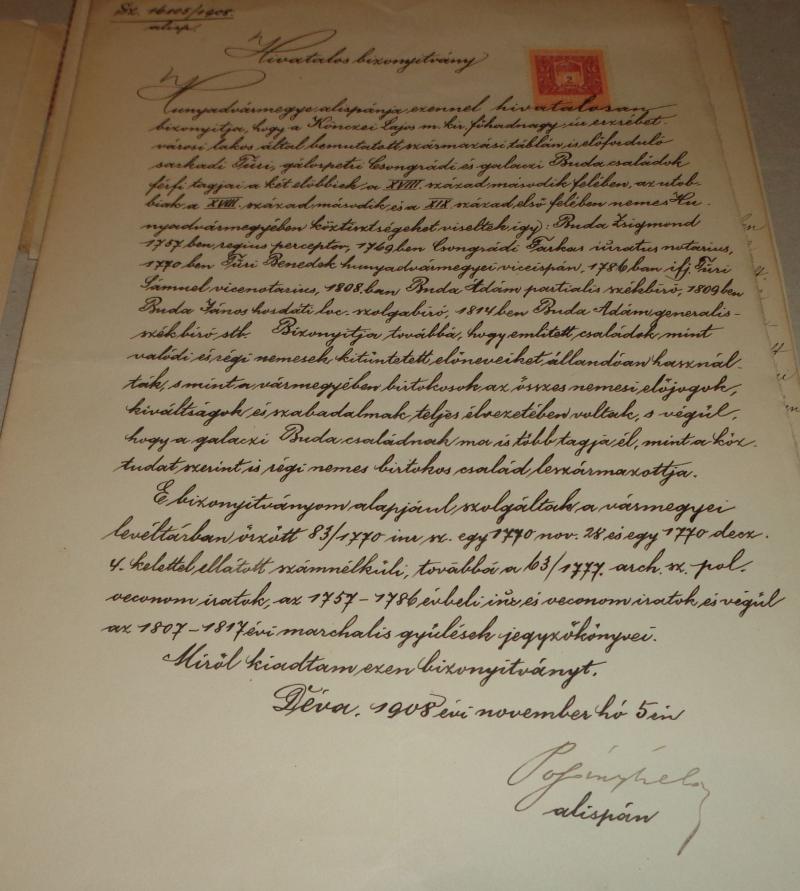 Sz. 16105/1908.
alisp.
Hivatalos bizonyitvány
2
Hunyadvármegye alispánja ezennel hivatalosan
bizonyitja, hogy a Könczei Lajos m. kir. főhadnagy úr erzsébet-
városi lakos által bemutatott származási táblán is előforduló
sarkadi Türi, gálospetri Csongrádi és galaczi Buda családok
férfi tagjai a két előbbiek a XVIII. század második felében, az utób-
biak a XVIII. század második és a XIX század első felében nemes Hu-
nyadvármegyében köztisztségeket viseltek így: Buda Zsigmond
1757 ben regius perceptor, 1769 ben Csongrádi Farkas iuratus notarius,
1770 ben Türi Benedek hunyadvármegyei viceispán, 1786 ban ifj. Türi
Sámuel vicenotarius, 1808. ban Buda Ádám partialis székbiró, 1809 ben
Buda János hosdáti loc. szolgabiró, 1814 ben Buda Ádám generalis-
székbiró stb. Bizonyitja továbbá, hogy emlitett családok mint
valódi és régi nemesek kitüntetett előneveiket állandóan használ-
ták, s mint a vármegyében birtokosok az összes nemesi előjogok,
kiváltságok és szabadalmak teljes élvezetében voltak, s végül,
hogy a galaczi Buda családnak ma is több tagja él, mint a köz-
tudat szerint is régi nemes birtokos család leszármazottja.
E bizonyitványom alapjául szolgáltak a vármegyei
levéltárban őrzött 83/1770 iur sz. egy 1770 nov. 28 és egy 1770 decz.
4. kelettel ellátott számnélküli, továbbá a 63/1777. arch. sz. pol.
oeconom iratok, az 1757–1786 évbeli iur és oeconom iratok és végül
az 1807–1817 évi marchalis gyülések jegyzőkönyvei.
Miről kiadtam ezen bizonyitványt.
Déva. 1908 évi november hó 5 én
alispán